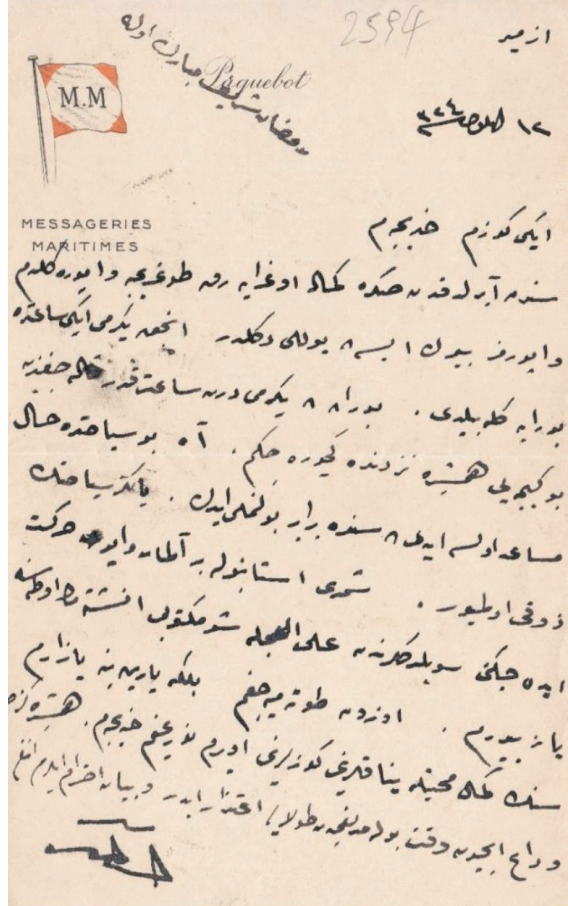 2594
ازمير
Paquebot
رمضان شريف مبارك اوله
M.M
١٢ ٣٢٤
MESSAGERIES
MARITIMES
ايكى كوزم خديجه م
سندن آيرلدقدن صكره اوغرايه رق طوغريجه واپوره كلدم
واپورمز بيوك ايسه ده يوللى دكلدر انجق يكرمى ايكى ساعتده
بورايه كله بيلدى . بوراده يكرمى درت ساعت قدر
بو كيجه يى همشيره نزدنده كچيره جكم . آه بو سياحتده حال
مساعد اولسه ايدى ده سنده برابر بولنملى ايدك . يالكز سياحتك
ذوقى اولميور . شمدى استانبوله بر آلمان واپورى حركت
ايده جكنى سويلدكلرندن على العجله شو مكتوبى
يازييورم . اوزون طوتميه جغم بلكه يارين ينه يازارم
سنك كمال محبتله يناقلريڭى كوزلريڭى اوپرم خديجه م . همشيره
وداع ايچون وقت بوله مديغمدن طولايى اعتذار ايدر و بيان احترام ايلرم